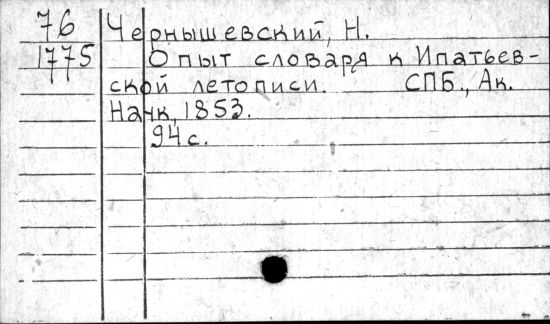 76 Чернышевский, Н.
1775 Опыт словаря к Ипатьев-
ской летописи. СПБ., Ак.
Наук, 1853.
94 с.